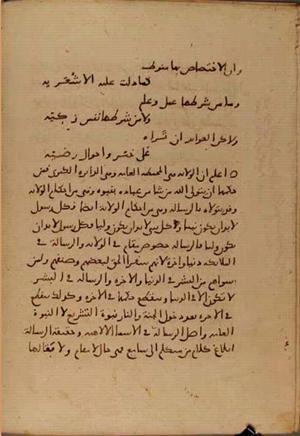 وان الاختصاص بها منوط
كما دلت عليه الاشعريه
وما من شرطها عمل وعلم
ولا من شرطها نفس زكيه
ولكن العوايد ان تراه
على خير واحوال رضيه
اعلم ان الولايه هى المحيطه العامه وهى الدايره الكبرى فمن
حكمها ان يتولى الله من شا من عباده بنبوه وهى من احكام الولايه
وقد يتولاه بالرساله وهى من احكام الولايه ايضا فكل رسول
لابد ان يكون نبيا وكل نبى لابد ان يكون وليا فكل رسول لابد ان
يكون وليا فالرساله خصوص مقام فى الولايه والرساله فى
الملايكه دنيا واخره لانهم سفرا الحق لبعضهم وصنفهم ولمن
سواهم من البشر فى الدنيا والاخره والرساله فى البشر
لا تكون الا فى الدنيا وينقطع حكمها فى الاخره وكذلك تنقطع
فى الاخره بعد دخول الجنه والنار نبوة التشريع لا النبوة
العامه واصل الرساله فى الاسما الالاهيه وحقيقة الرسالة
ابلاغ كلام من متكلم الى سامع فهى حال لا مقام ولا بقا لها